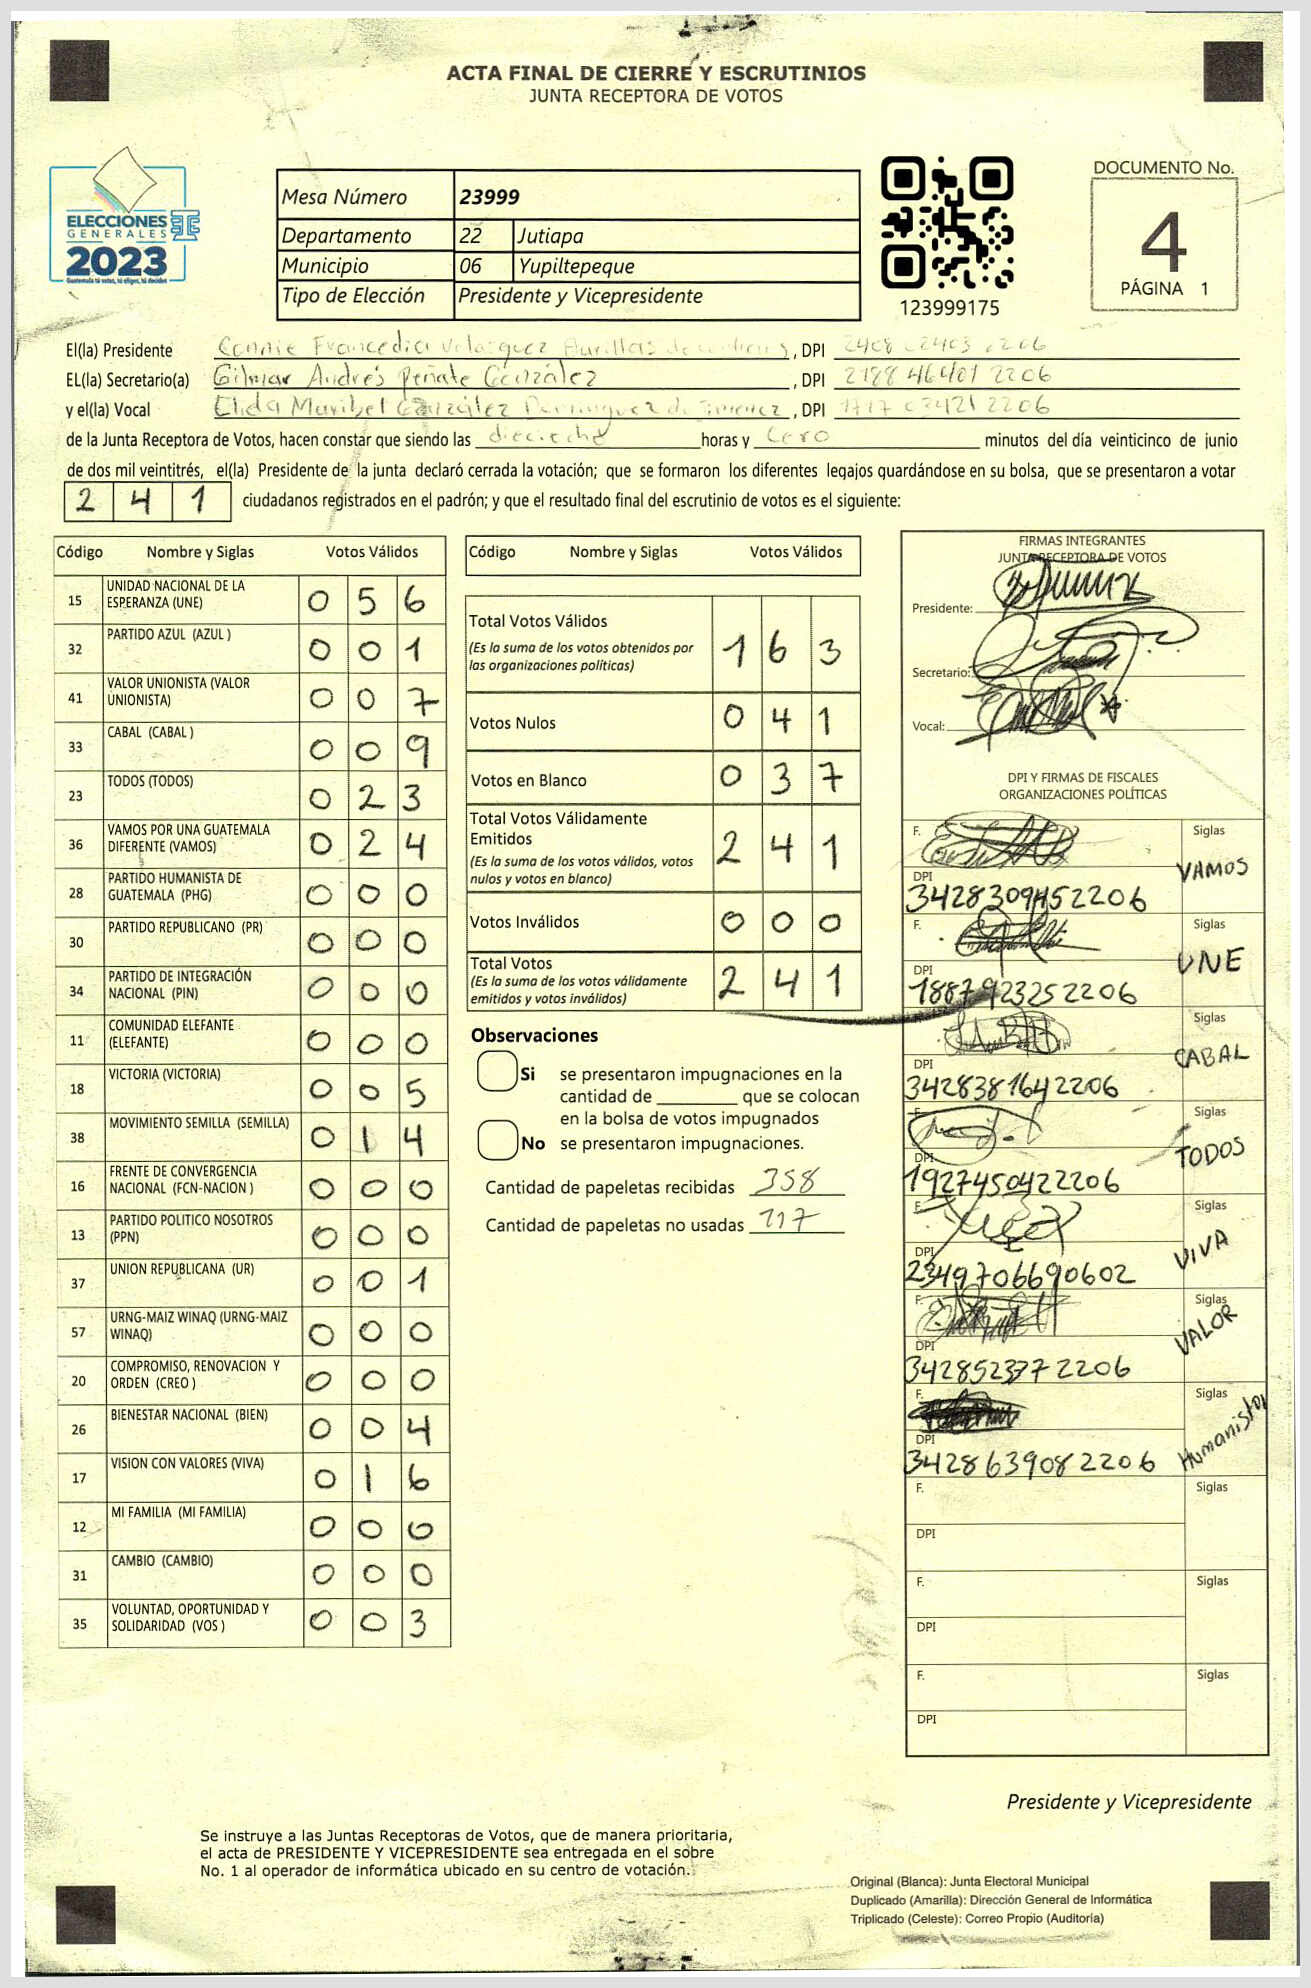 ACTA FINAL DE CIERRE Y ESCRUTINIOS
JUNTA RECEPTORA DE VOTOS
ELECCIONES
GENERALES
2023
Guatemala tú votas, tú eliges, tú decides
Mesa Número 23999
Departamento 22 Jutiapa
Municipio 06 Yupiltepeque
Tipo de Elección Presidente y Vicepresidente
123999175
DOCUMENTO No.
4
PÁGINA 1
El(la) Presidente Connie Velasquez , DPI 2206
EL(la) Secretario(a) Gilmar Andrés Peñate González , DPI 2188 46401 2206
y el(la) Vocal Elida Maribel González Dominguez de Jimenez , DPI 2206
de la Junta Receptora de Votos, hacen constar que siendo las dieciocho horas y cero minutos del día veinticinco de junio
de dos mil veintitrés, el(la) Presidente de la junta declaró cerrada la votación; que se formaron los diferentes legajos guardándose en su bolsa, que se presentaron a votar
2 4 1 ciudadanos registrados en el padrón; y que el resultado final del escrutinio de votos es el siguiente:
Código Nombre y Siglas Votos Válidos
15 UNIDAD NACIONAL DE LA ESPERANZA (UNE) 0 5 6
32 PARTIDO AZUL (AZUL ) 0 0 1
41 VALOR UNIONISTA (VALOR UNIONISTA) 0 0 7
33 CABAL (CABAL ) 0 0 9
23 TODOS (TODOS) 0 2 3
36 VAMOS POR UNA GUATEMALA DIFERENTE (VAMOS) 0 2 4
28 PARTIDO HUMANISTA DE GUATEMALA (PHG) 0 0 0
30 PARTIDO REPUBLICANO (PR) 0 0 0
34 PARTIDO DE INTEGRACIÓN NACIONAL (PIN) 0 0 0
11 COMUNIDAD ELEFANTE (ELEFANTE) 0 0 0
18 VICTORIA (VICTORIA) 0 0 5
38 MOVIMIENTO SEMILLA (SEMILLA) 0 1 4
16 FRENTE DE CONVERGENCIA NACIONAL (FCN-NACION ) 0 0 0
13 PARTIDO POLITICO NOSOTROS (PPN) 0 0 0
37 UNION REPUBLICANA (UR) 0 0 1
57 URNG-MAIZ WINAQ (URNG-MAIZ WINAQ) 0 0 0
20 COMPROMISO, RENOVACION Y ORDEN (CREO ) 0 0 0
26 BIENESTAR NACIONAL (BIEN) 0 0 4
17 VISION CON VALORES (VIVA) 0 1 6
12 MI FAMILIA (MI FAMILIA) 0 0 0
31 CAMBIO (CAMBIO) 0 0 0
35 VOLUNTAD, OPORTUNIDAD Y SOLIDARIDAD (VOS ) 0 0 3
Código Nombre y Siglas Votos Válidos
Total Votos Válidos 1 6 3
(Es la suma de los votos obtenidos por
las organizaciones políticas)
Votos Nulos 0 4 1
Votos en Blanco 0 3 7
Total Votos Válidamente
Emitidos 2 4 1
(Es la suma de los votos válidos, votos
nulos y votos en blanco)
Votos Inválidos 0 0 0
Total Votos 2 4 1
(Es la suma de los votos válidamente
emitidos y votos inválidos)
Observaciones
Si se presentaron impugnaciones en la
cantidad de ________ que se colocan
en la bolsa de votos impugnados
No se presentaron impugnaciones.
Cantidad de papeletas recibidas 358
Cantidad de papeletas no usadas 117
FIRMAS INTEGRANTES
JUNTA RECEPTORA DE VOTOS
Presidente:
Secretario:
Vocal:
DPI Y FIRMAS DE FISCALES
ORGANIZACIONES POLÍTICAS
F. Siglas
VAMOS
DPI
F. Siglas
UNE
DPI
1887923252206
F. Siglas
CABAL
DPI
3428381642206
F. Siglas
TODOS
DPI
1927450422206
F. Siglas
VIVA
DPI
2349706690602
F. Siglas
VALOR
DPI
F. Siglas
Humanista
DPI
3428639082206
F. Siglas
DPI
F. Siglas
DPI
F. Siglas
DPI
Presidente y Vicepresidente
Se instruye a las Juntas Receptoras de Votos, que de manera prioritaria,
el acta de PRESIDENTE Y VICEPRESIDENTE sea entregada en el sobre
No. 1 al operador de informática ubicado en su centro de votación.
Original (Blanca): Junta Electoral Municipal
Duplicado (Amarilla): Dirección General de Informática
Triplicado (Celeste): Correo Propio (Auditoria)